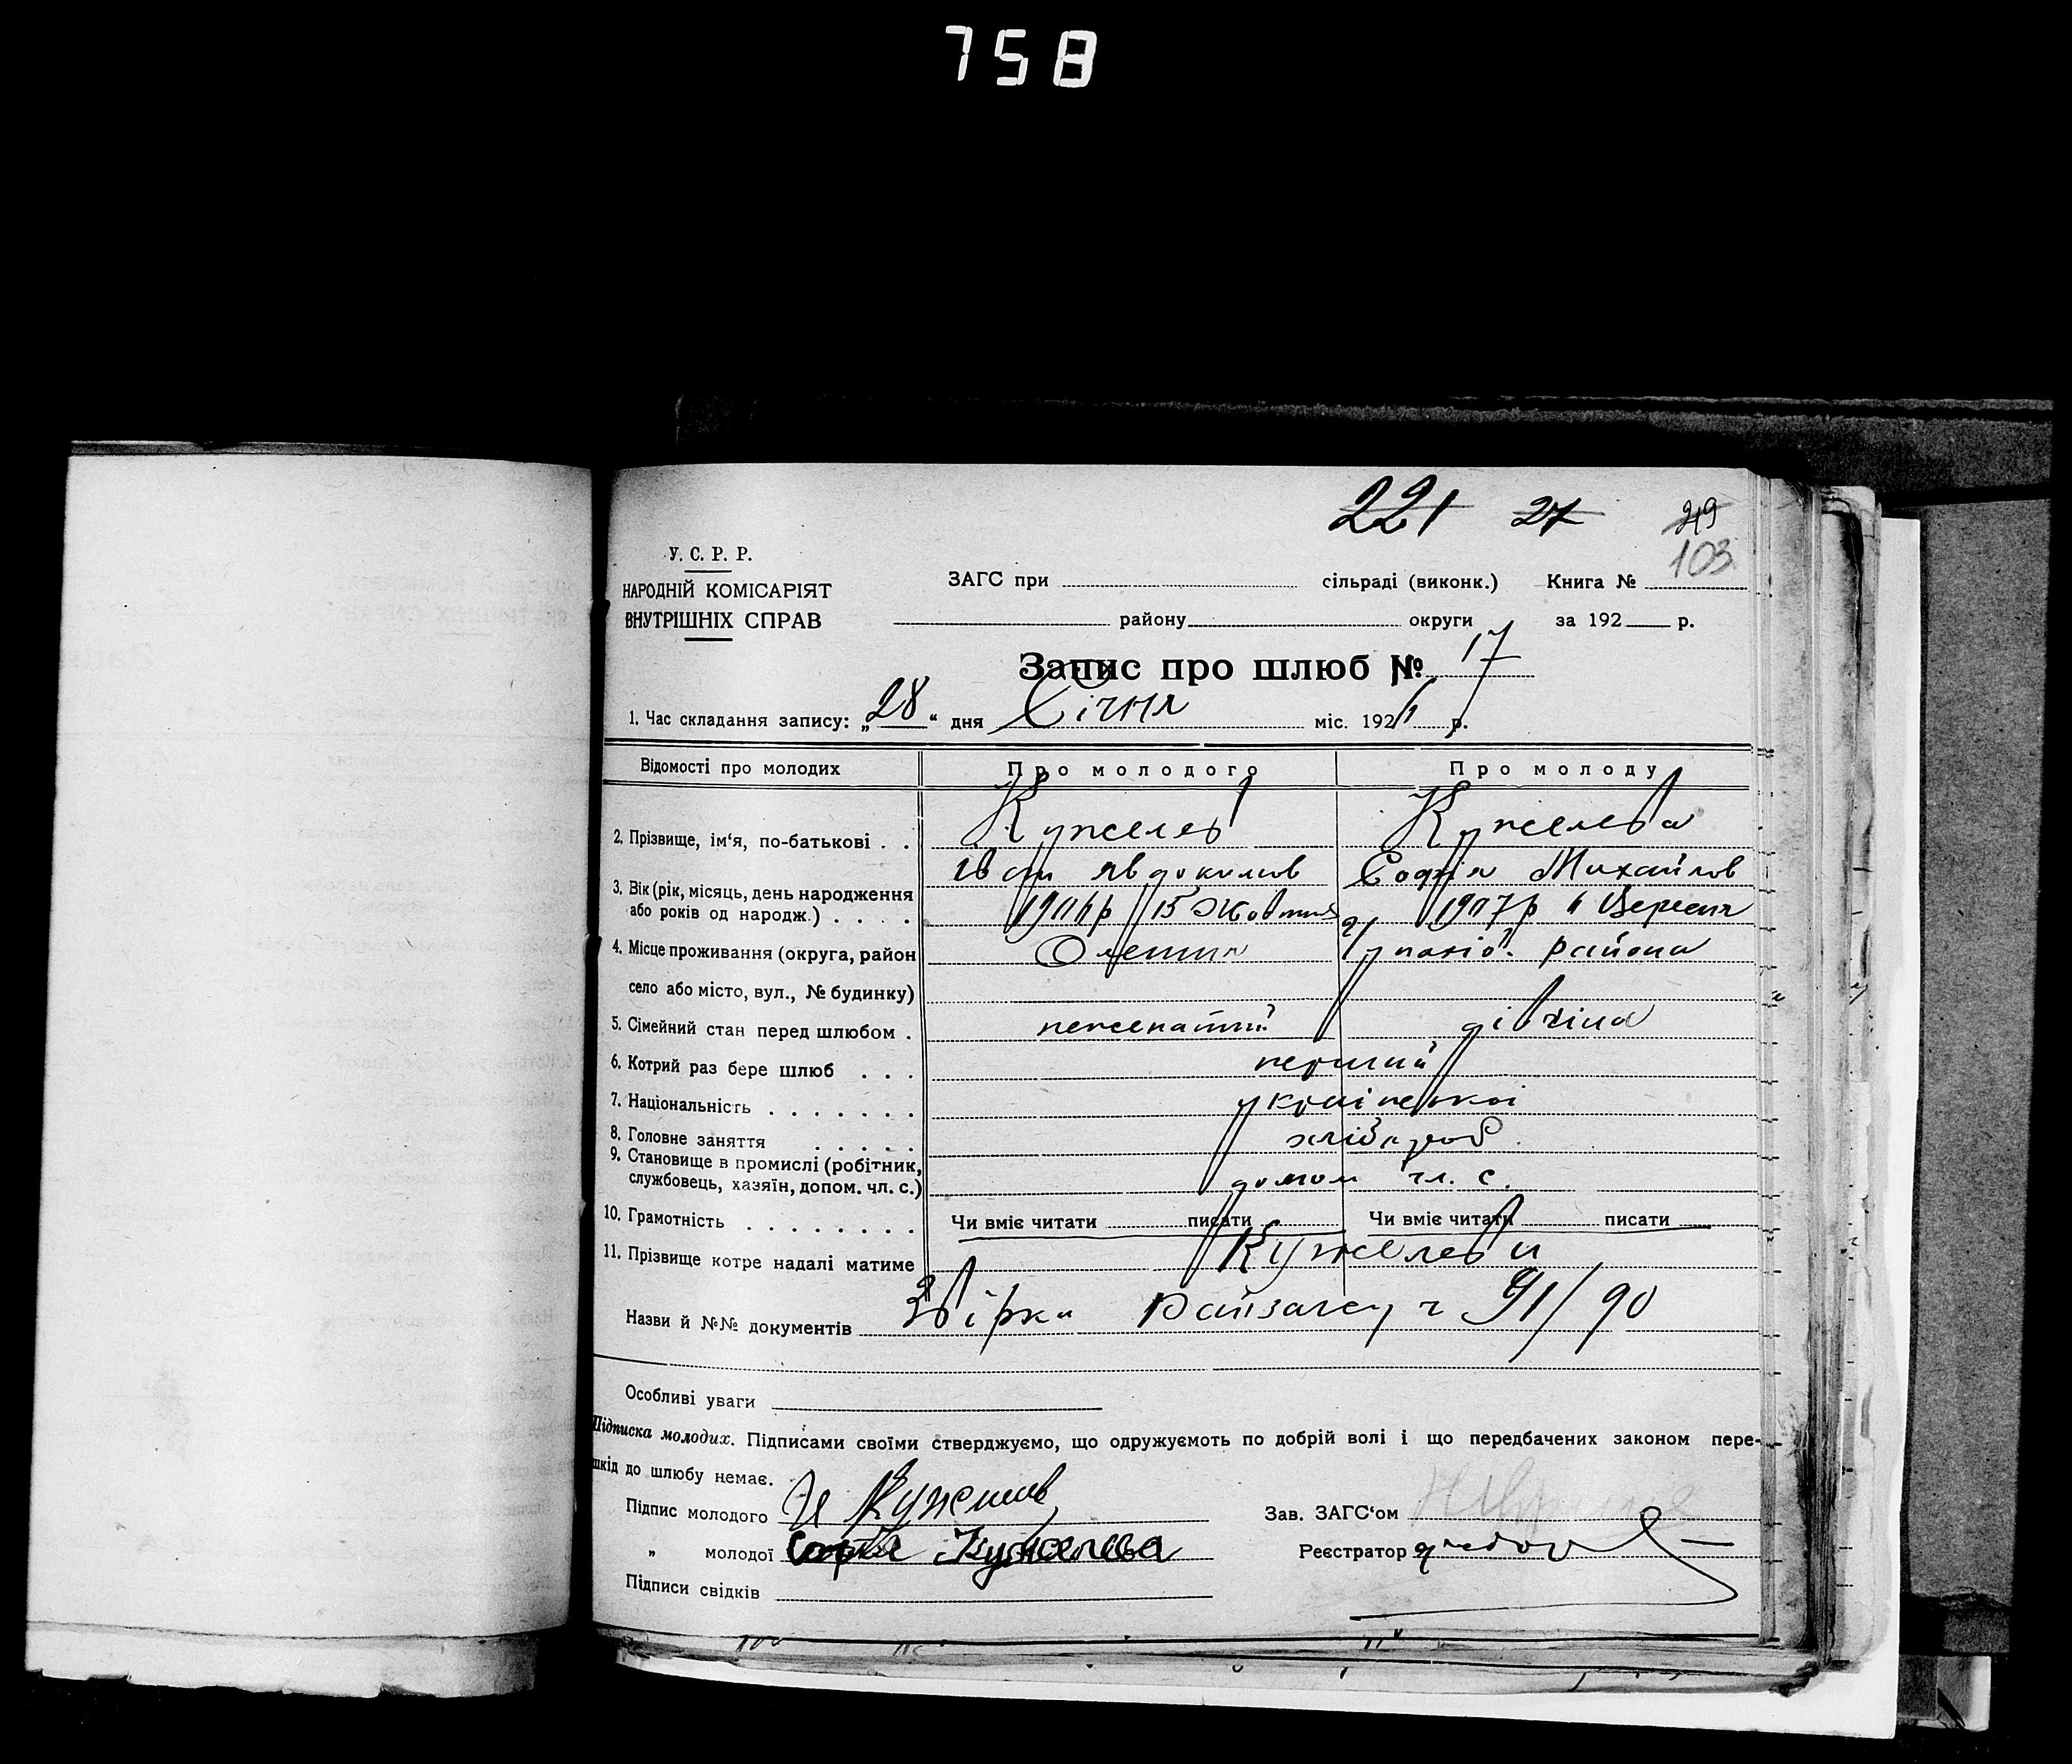 758
221 27 219
103
У. С. Р. Р.
НАРОДНІЙ КОМІСАРІЯТ
ВНУТРІШНІХ СПРАВ
ЗАГС при сільраді (виконк.) Книга №
району округи за 192 р.
Запис про шлюб № 17
1. Час складання запису: „28“ дня Січня міс. 192 р.
Відомості про молодих Про молодого Про молоду
2. Прізвище, ім‘я, по-батькові . . Кужелев Кужелева
Іван Явдокимов Софія Михайлов
3. Вік (рік, місяць, день народження
або років од народж.) . . . . 15 Жовтня 1907р Вересня
4. Місце проживання (округа, район района
село або місто, вул., № будинку)
5. Сімейний стан перед шлюбом . нежонатий дівчина
6. Котрий раз бере шлюб . . . перший
7. Національність . . . . . . . української
8. Головне заняття . . . . . хлібороб
9. Становище в промислі (робітник,
службовець, хазяїн, допом. чл. с.) допом чл. с.
10. Грамотність . . . . . . . . Чи вміє читати писати Чи вміє читати писати
11. Прізвище котре надалі матиме Кужелеви
Назви й №№ документів Райзагсу ч 91/90
Особливі уваги
Підписка молодих. Підписами своїми стверджуємо, що одружуємоть по добрій волі і що передбачених законом пере-
шкід до шлюбу немає.
Підпис молодого И Кужелев
„ молодої Софія Кужелева
Зав. ЗАГС‘ом
Реєстратор
Підписи свідків